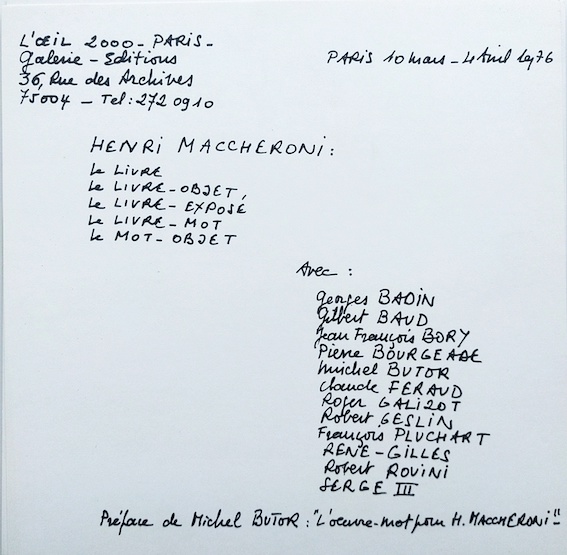 L'ŒIL 2000 - PARIS -
Galerie - Editions
36, Rue des Archives
75004 - Tel: 272 0910
PARIS 10 mars - 4 Avril 1976
HENRI MACCHERONI :
Le LIVRE
Le LIVRE-OBJET,
Le LIVRE-EXPOSÉ
Le LIVRE-MOT
Le MOT-OBJET
Avec :
Georges BADIN
Gilbert BAUD
Jean François BORY
Pierre BOURGEADE
Michel BUTOR
Claude FERAUD
Roger GALIZOT
Robert GESLIN
François PLUCHART
RENE-GILLES
Robert ROVINI
SERGE III
Préface de Michel BUTOR : "L'oeuvre-mot pour H. MACCHERONI"